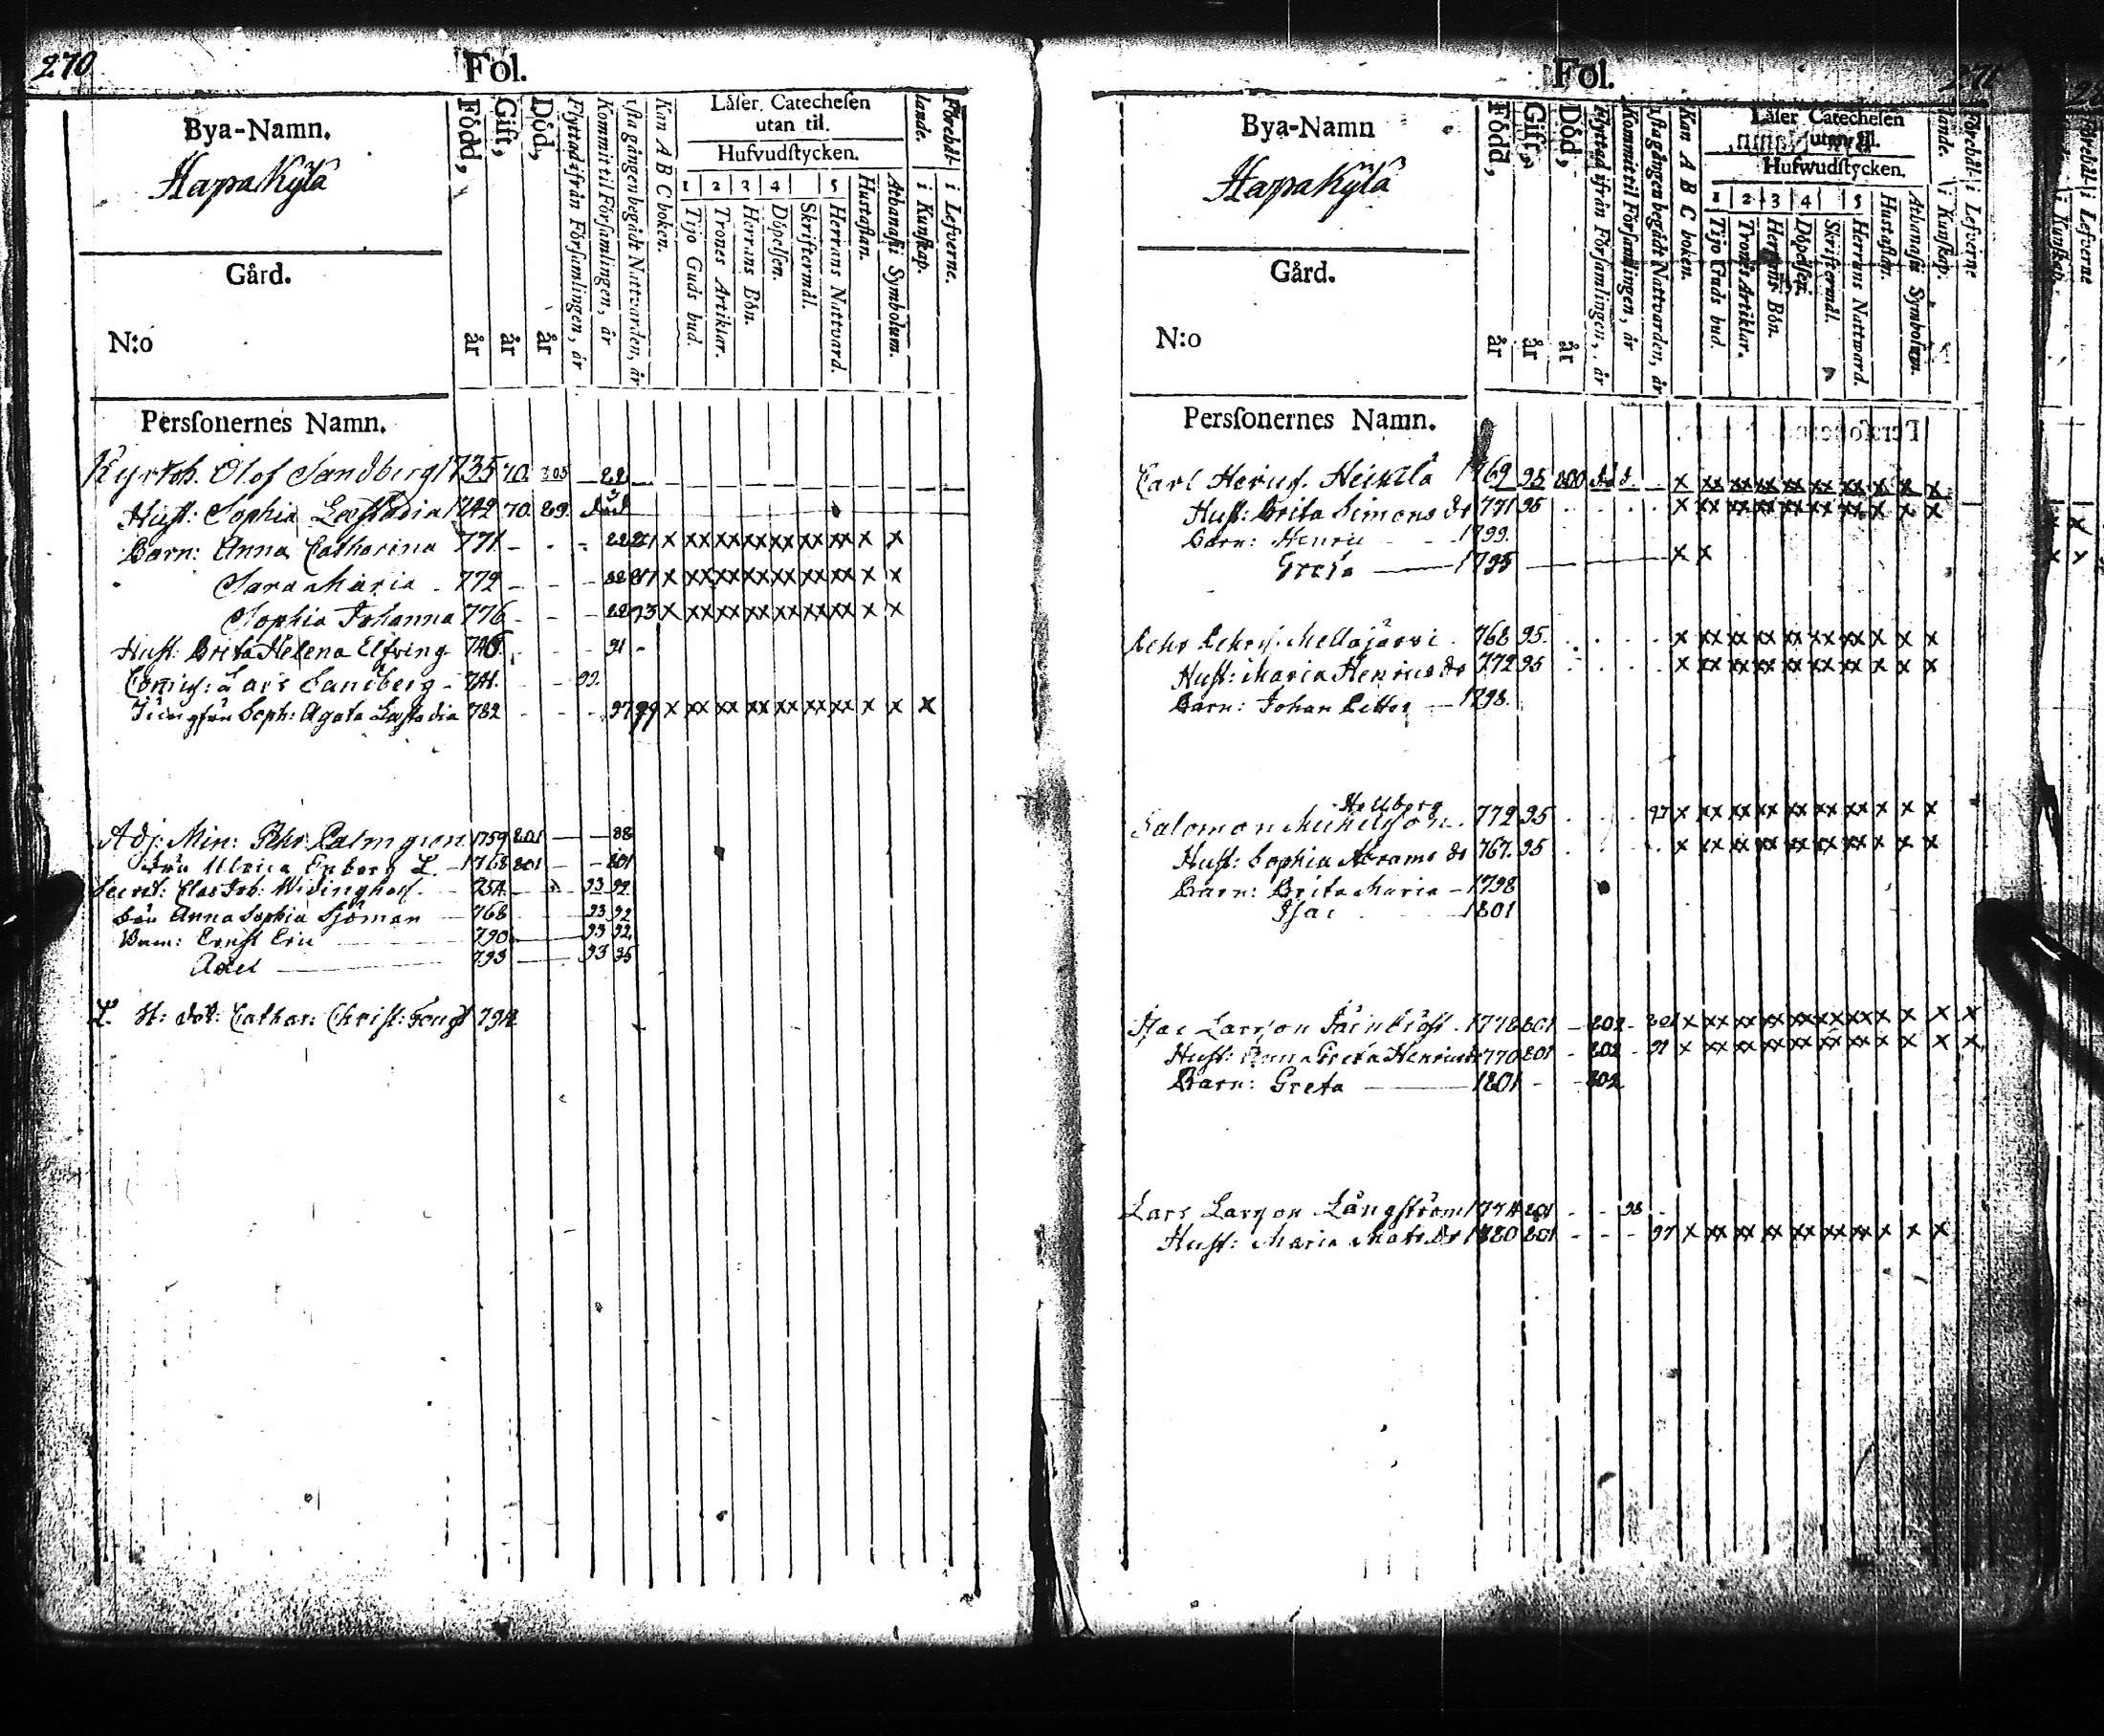 270
Fol.
Bya-Namn.
HapaKylä
Gård.
N:o
Persſonernes Namn.
Född, år
Gift, år
Död, år
Flyttad ifrån Förſamlingen, år
Kommit til Förſamlingen, år
1ſta gången begådt Nattvarden, år
Kan A B C boken.
Låſer Catecheſen
utan til.
Hufvudſtycken.
1 2 3 4 5
Tijo Guds bud.
Trones Artiklar.
Herrans Bön.
Döpelſen.
Skriftermål.
Herrans Nattvard.
Huſtaflan.
Athanaſii Symbolum.
Förehållande.
i Kunſkap.
i Lefverne.
Kyrkoh. Olof Sandberg 1735 70. 805 — 88
Huſt: Sophia Læſtadia 1749 70. 89. död
Barn: Anna Catharina 771 - - - 88 x xx xx xx xx xx xx x x
Sara Maria 772 - - - 88 87 x xx xx xx xx xx xx x x
Sophia Johanna 776 - - - 88 93 x xx xx xx xx xx xx x x
Huſt: Brita Helena Elfving - - - 91 -
Lars Sandberg - - - 99.
Jungfru Soph: Agata Læſtadia 782 - - - 97 99 x xx xx xx xx xx xx x x x
Adj: Min: Pehr Palmgren 1759 801 — — 88
Fru Ulrica Enberg L. 1768 801 — — 801
Secret: 754 93 92
Fru Anna Sophia Sjöman 768 93 92
Barn: Ernſt Eric 790 93 92
Axel 793 93 95
L. St: dot: Cathar: Chriſt: 794
271
Fol.
Bya-Namn
HapaKylä
Gård.
N:o
Persſonernes Namn.
Född, år
Gift, år
Död, år
Flyttad ifrån Förſamlingen, år
Kommit til Förſamlingen, år
1ſta gången begådt Nattvarden, år
Kan A B C boken.
Låſer Catecheſen
utan til.
Hufwudſtycken.
1 2 3 4 5
Tijo Guds bud.
Trones Artiklar.
Herrans Bön.
Döpelſen.
Skriftermål.
Herrans Nattward.
Huſtaflan.
Athanaſii Symbolum.
Förehållande.
i Kunſkap.
i Lefverne
Carl Henriſ. Heikkilä 1769 95 800 död x xx xx xx xx xx xx x x x
Huſt: Brita Simons dr 771 95 x xx xx xx xx xx xx x x x
Barn: Henric 1799.
Greta 1795 x x
Pehr Pehrſ. Mellajärvi 768 95. x xx xx xx xx xx xx x x x
Huſt: Maria Henrics dr 772 95 x xx xx xx xx xx xx x x x
Barn: Johan Petter 1798.
Hellberg
Salomon Michelſſon 772 95 97 x xx xx xx xx xx xx x x x
Huſt: Sophia Abrams dr 767. 95 x xx xx xx xx xx xx x x x
Barn: Brita Maria 1798
Iſac 1801
Iſac Larſſon 1778 801 - 802 - x xx xx xx xx xx xx x x x x
Huſt: Anna Greta Henricsdr 770 801 - 802 - 91 x xx xx xx xx xx xx x x x x
Barn: Greta 1801 - - 802
Lars Larſſon Långſtröm 1774 801 - - 98 -
Huſt: Maria Mats Dr 1780 801 - - - 97 x xx xx xx xx xx xx x x x